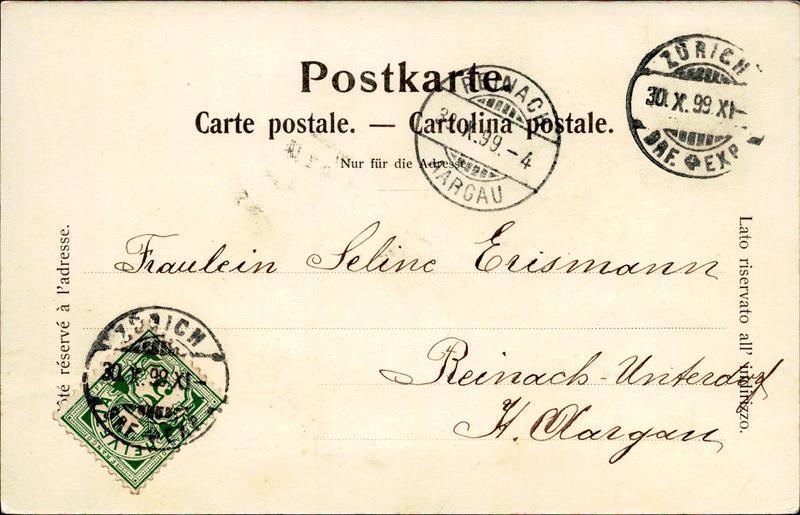 Postkarte.
Carte postale. — Cartolina postale.
Nur für die Adresse.
REINACH
30.X.99.-4
AARGAU
ZÜRICH
30.X.99.XI-
BRF. EXP.
Côté réservé à l'adresse.
Lato riservato all' indirizzo.
Fräulein Seline Erismann
Reinach-Unterdorf
Kt. Aargau
ZÜRICH
30.X.99.XI-
BRF. EXP.